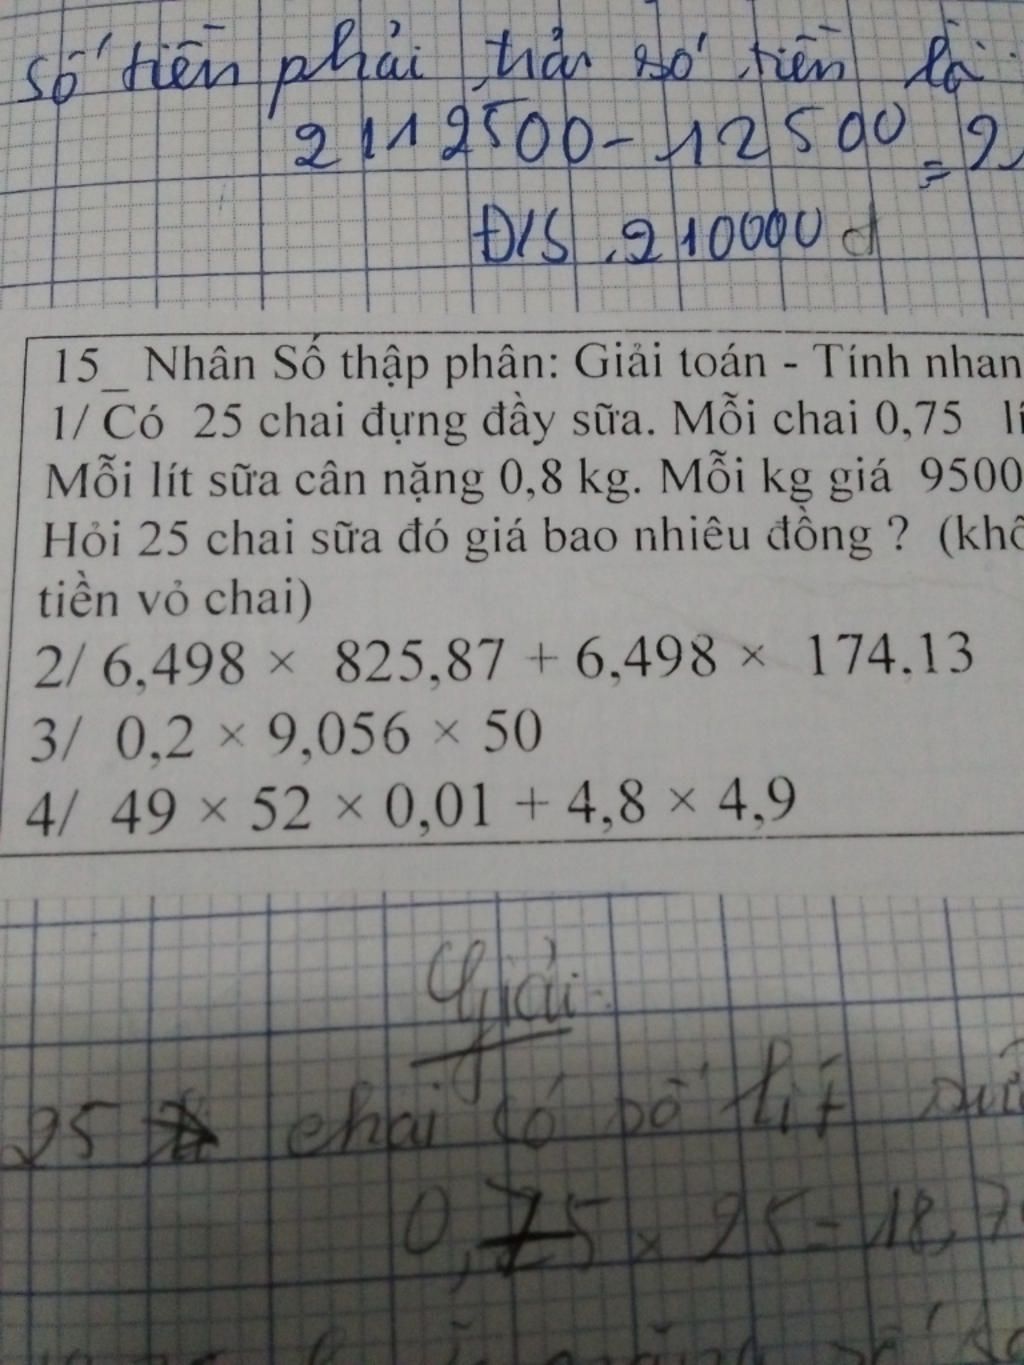 số tiền phải trả số tiền là:
2112500 - 12500 = 2
Đ/S .210000 đ
15_ Nhân Số thập phân: Giải toán - Tính nhan
1/ Có 25 chai đựng đầy sữa. Mỗi chai 0,75 lí
Mỗi lít sữa cân nặng 0,8 kg. Mỗi kg giá 9500
Hỏi 25 chai sữa đó giá bao nhiêu đồng ? (khô
tiền vỏ chai)
2/ 6,498 × 825,87 + 6,498 × 174,13
3/ 0,2 × 9,056 × 50
4/ 49 × 52 × 0,01 + 4,8 × 4,9
Giải:
25 chai có số lít sữ
0,75 × 25 = 18,7